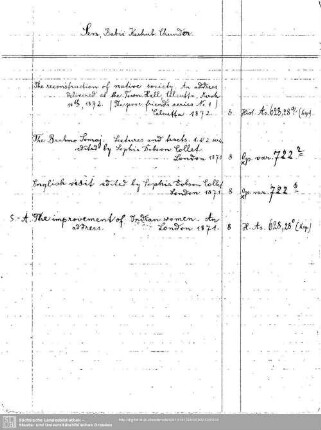 Sen, Babu Keshub Chunder
The reconstruction of native society. An address
delivered at the Town Hall, Calcutta, March
1872. (The poor friends series No 1)
Calcutta 1872. 8 Hist. As. 628,28
The Brahmo Somaj. Lectures and tracts. 1. & 2 ser.
edited by Sophia Dobson Collet.
London 1871 8 Op. var. 722
English visit edited by Sophia Dobson Collet
London 1871. 8 Op. var. 722
S. A. The improvement of Indian women. An
address. London 1871. 8 H. As. 628,28
Sächsische Landesbibliothek -
Staats- und Universitätsbibliothek Dresden